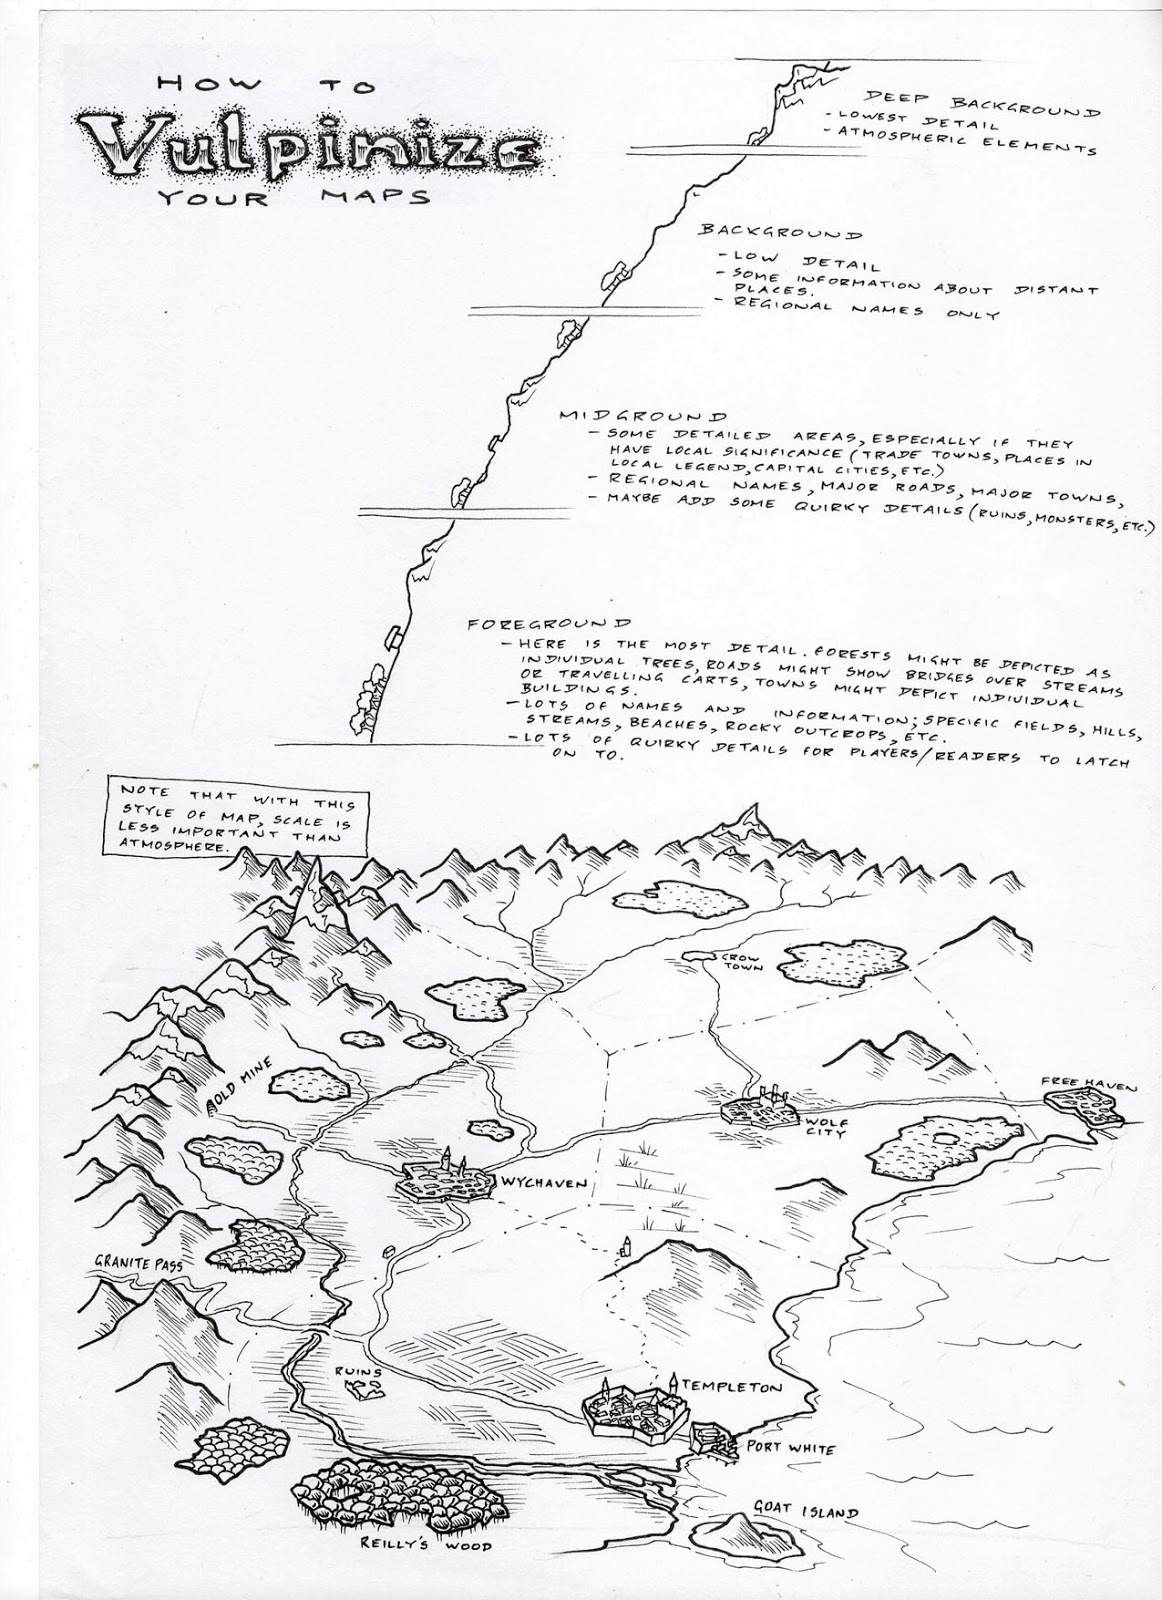 HOW TO
Vulpinize
YOUR MAPS
DEEP BACKGROUND
- LOWEST DETAIL
- ATMOSPHERIC ELEMENTS
BACKGROUND
- LOW DETAIL
- SOME INFORMATION ABOUT DISTANT
PLACES.
- REGIONAL NAMES ONLY
MIDGROUND
- SOME DETAILED AREAS, ESPECIALLY IF THEY
HAVE LOCAL SIGNIFICANCE (TRADE TOWNS, PLACES IN
LOCAL LEGEND, CAPITAL CITIES, ETC.)
- REGIONAL NAMES, MAJOR ROADS, MAJOR TOWNS,
- MAYBE ADD SOME QUIRKY DETAILS (RUINS, MONSTERS, ETC.)
FOREGROUND
- HERE IS THE MOST DETAIL. FORESTS MIGHT BE DEPICTED AS
INDIVIDUAL TREES, ROADS MIGHT SHOW BRIDGES OVER STREAMS
OR TRAVELLING CARTS, TOWNS MIGHT DEPICT INDIVIDUAL
BUILDINGS.
- LOTS OF NAMES AND INFORMATION; SPECIFIC FIELDS, HILLS,
STREAMS, BEACHES, ROCKY OUTCROPS, ETC.
- LOTS OF QUIRKY DETAILS FOR PLAYERS/READERS TO LATCH
ON TO.
NOTE THAT WITH THIS
STYLE OF MAP, SCALE IS
LESS IMPORTANT THAN
ATMOSPHERE.
CROW
TOWN
OLD MINE
FREE HAVEN
WOLF
CITY
WYCHAVEN
GRANITE PASS
RUINS
TEMPLETON
PORT WHITE
GOAT ISLAND
REILLY'S WOOD